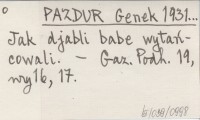 PAZDUR Genek 1931...
Jak djabli babe wytań-
cowali. — Gaz. Podh. 19,
nry 16, 17.